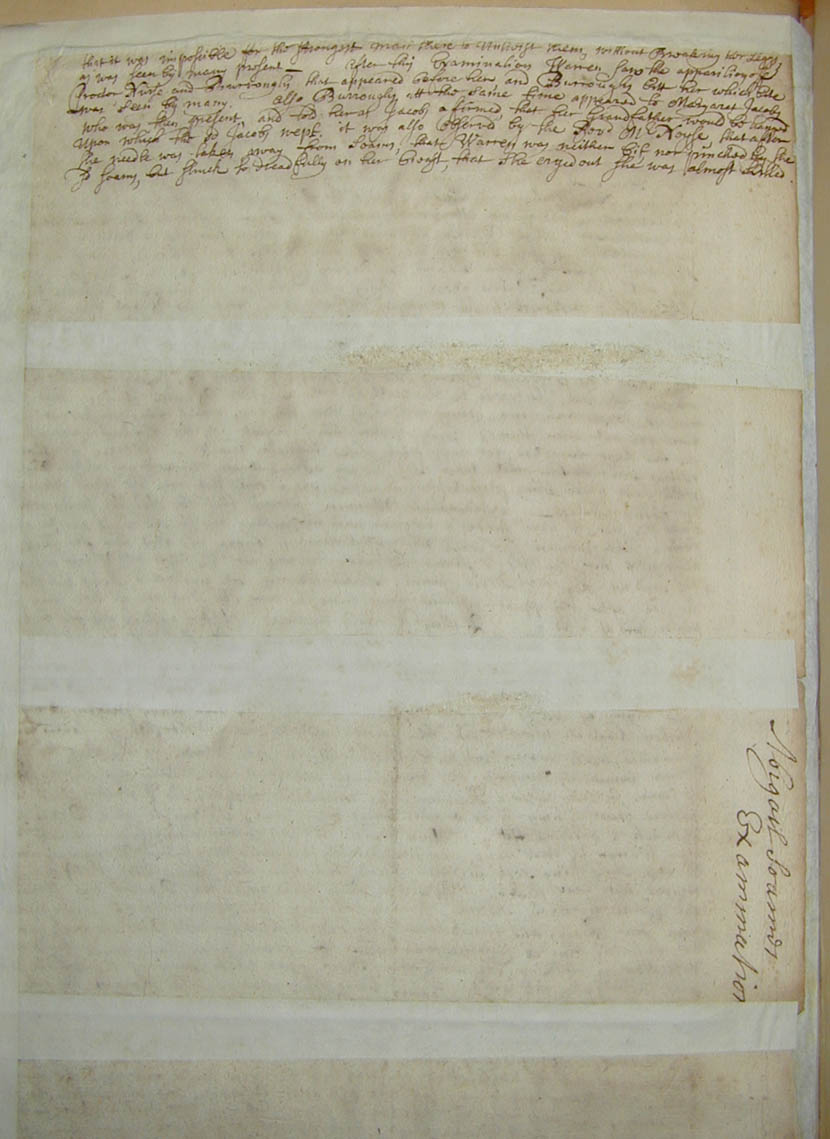 that it was impossible for the strongest man there to Untwist them, without Breaking her Leggs
as was seen by many present — After this Examination Warren saw the apparition of
Procter Nurse and Burroughs that appeared before her and Burroughs bitt her which bite
was seen by many. also Burroughs att the same time appeared to Margaret Jacobs
who was then present, and told her as Jacobs affirmed, that her Grandfather would be hanged
upon which the sd Jacobs wept. it was also observed by the Revd Mr Noyse, that after
the needle was taken away from Soams, that Warren was neither bit nor pinched by the
sd Soams, but struck so dreadfully on her breast, that she cryed out she was almost killed.
Abigail Soames
Examination